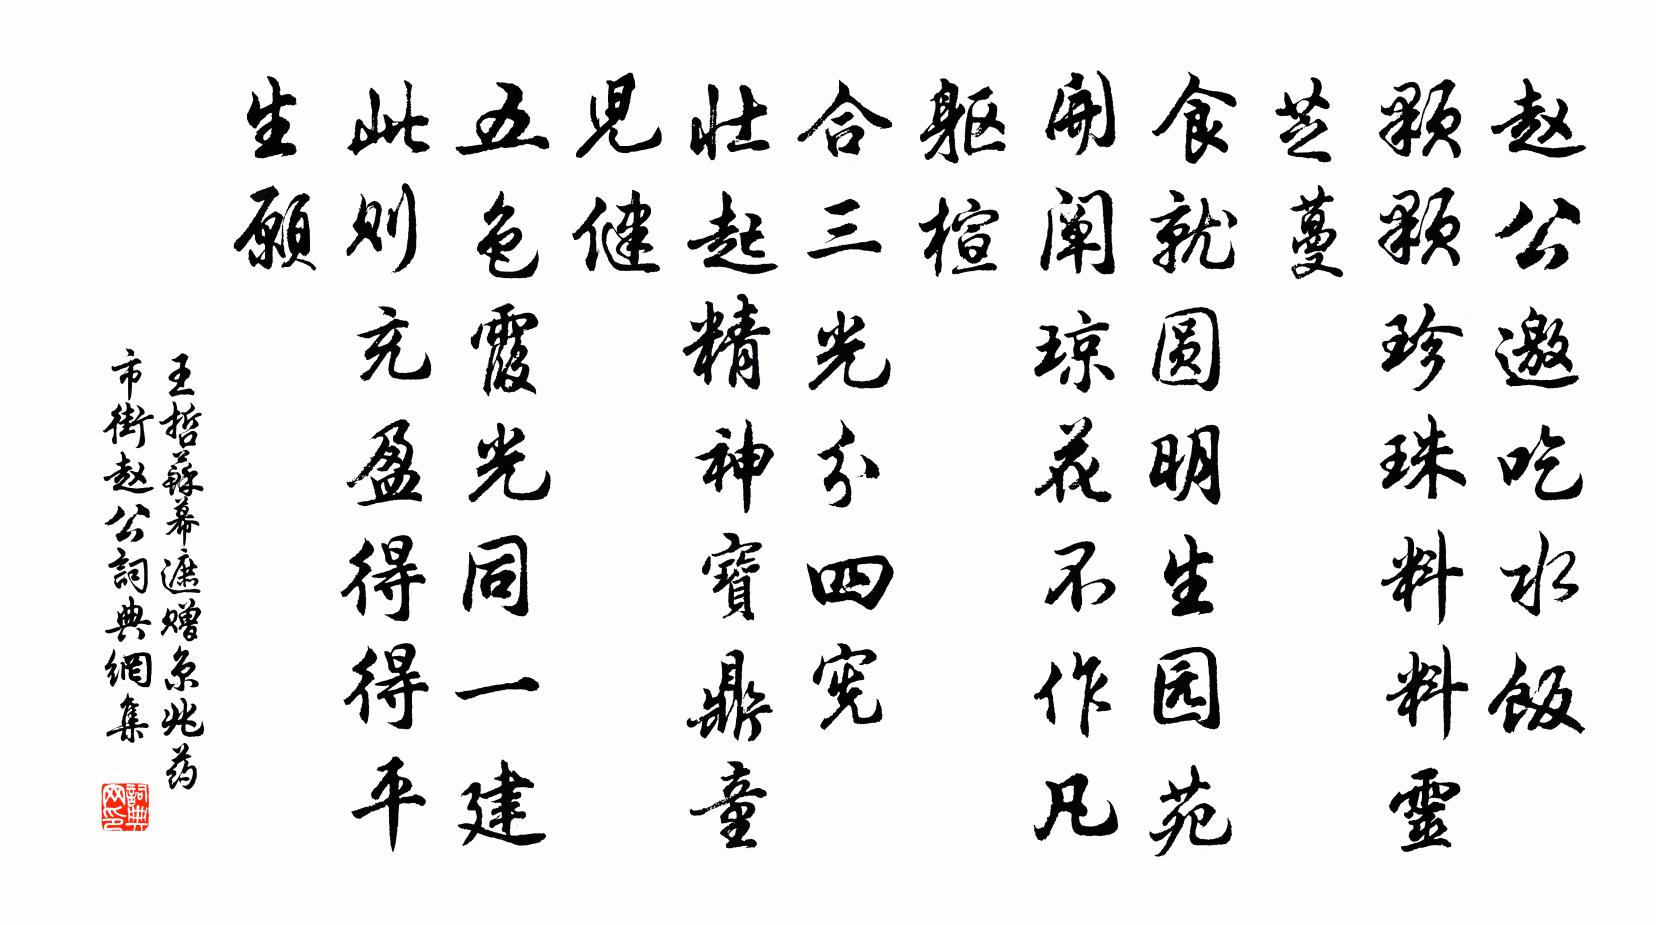 赵公邀吃水饭
颗颗珍珠料料靈
芝蔓
食就圆明生园苑
開阐琼花不作凡
躯楦
合三光分四宪
壮起精神寶鼎童
児健
五色霞光同一建
此则充盈得得平
生願
王哲蘇幕遮赠京兆药
市街赵公詞典網集
詞典网印